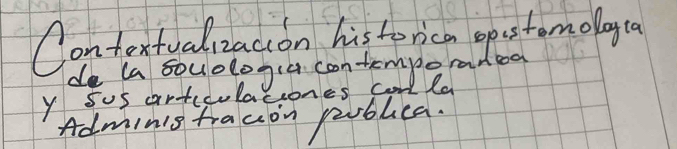 Contextualización historica epistemologia
de la sociologia contemporanea
y sus articulaciones con la
Administración publica.